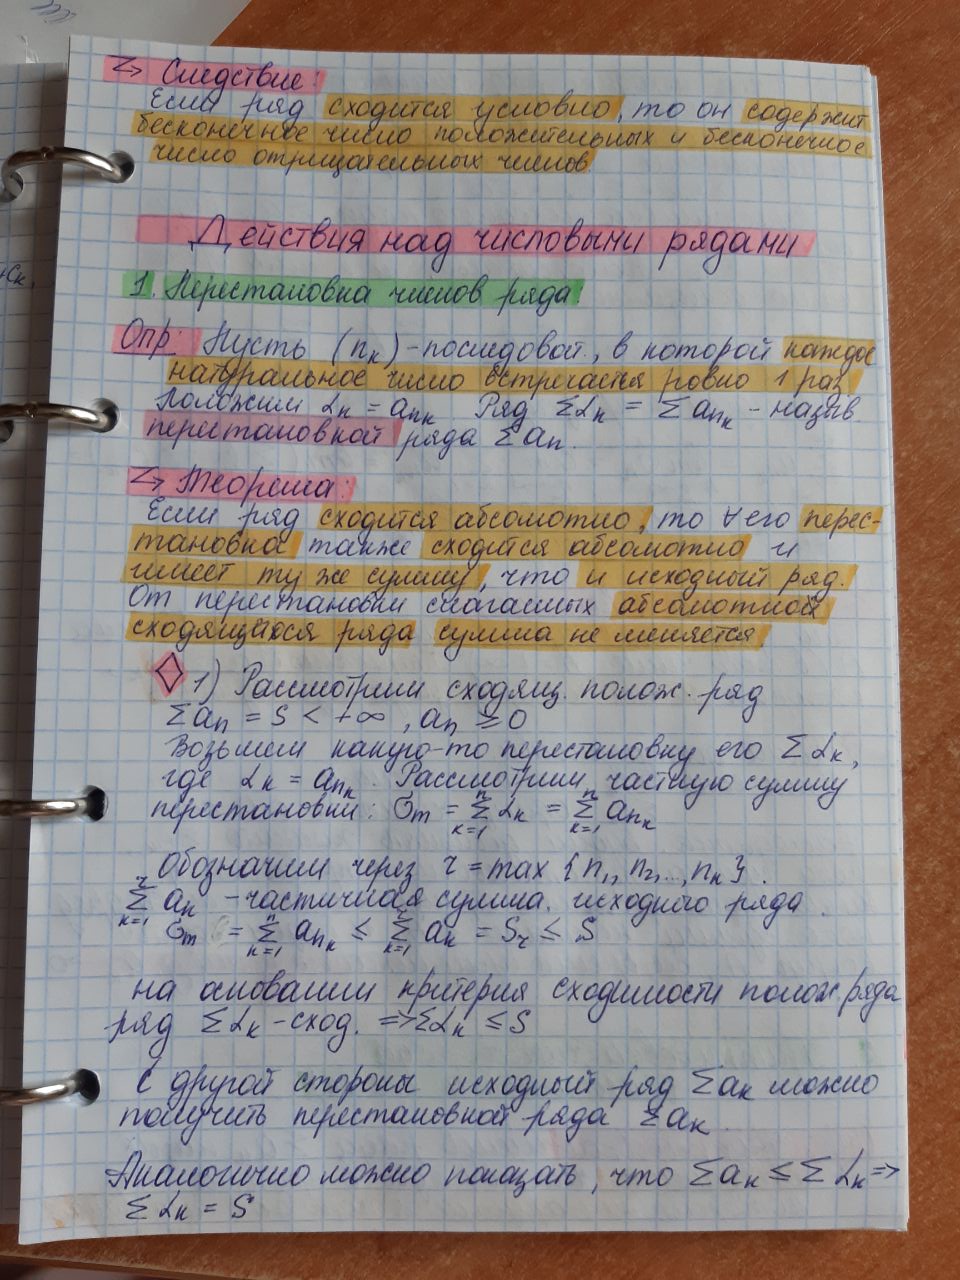 ↳ Следствие:
Если ряд сходится условно, то он содержит
бесконечное число положительных и бесконечное
число отрицательных членов.
Действия над числовыми рядами
1. Перестановка членов ряда
Опр: Пусть (nₖ) - последоват., в которой каждое
натуральное число встречается ровно 1 раз.
Положим αₖ = aₙₖ Ряд Σαₖ = Σaₙₖ - назыв.
перестановкой ряда Σaₙ.
↳ Теорема:
Если ряд сходится абсолютно, то ∀ его перес-
тановка также сходится абсолютно и
имеет ту же сумму, что и исходный ряд.
От перестановки слагаемых абсолютной
сходящегося ряда сумма не меняется.
◇ 1) Рассмотрим сходящ. полож. ряд
Σaₙ = S < +∞, aₙ ≥ 0
Возьмем какую-то перестановку его Σαₖ,
где αₖ = aₙₖ. Рассмотрим частную сумму
перестановки: σₘ = Σₖ₌₁ⁿ αₖ = Σₖ₌₁ⁿ aₙₖ
Обозначим через r = max {n₁, n₂, ..., nₖ}.
Σₖ₌₁ʳ aₖ - частичная сумма исходного ряда.
σₘ = Σₖ₌₁ⁿ aₙₖ ≤ Σₖ₌₁ʳ aₖ = Sᵣ ≤ S
на основании критерия сходимости полож. ряда
ряд Σαₖ - сход. => Σαₖ ≤ S
С другой стороны исходный ряд Σaₖ можно
получить перестановкой ряда Σaₖ.
Аналогично можно показать, что Σaₖ ≤ Σαₖ =>
Σαₖ = S